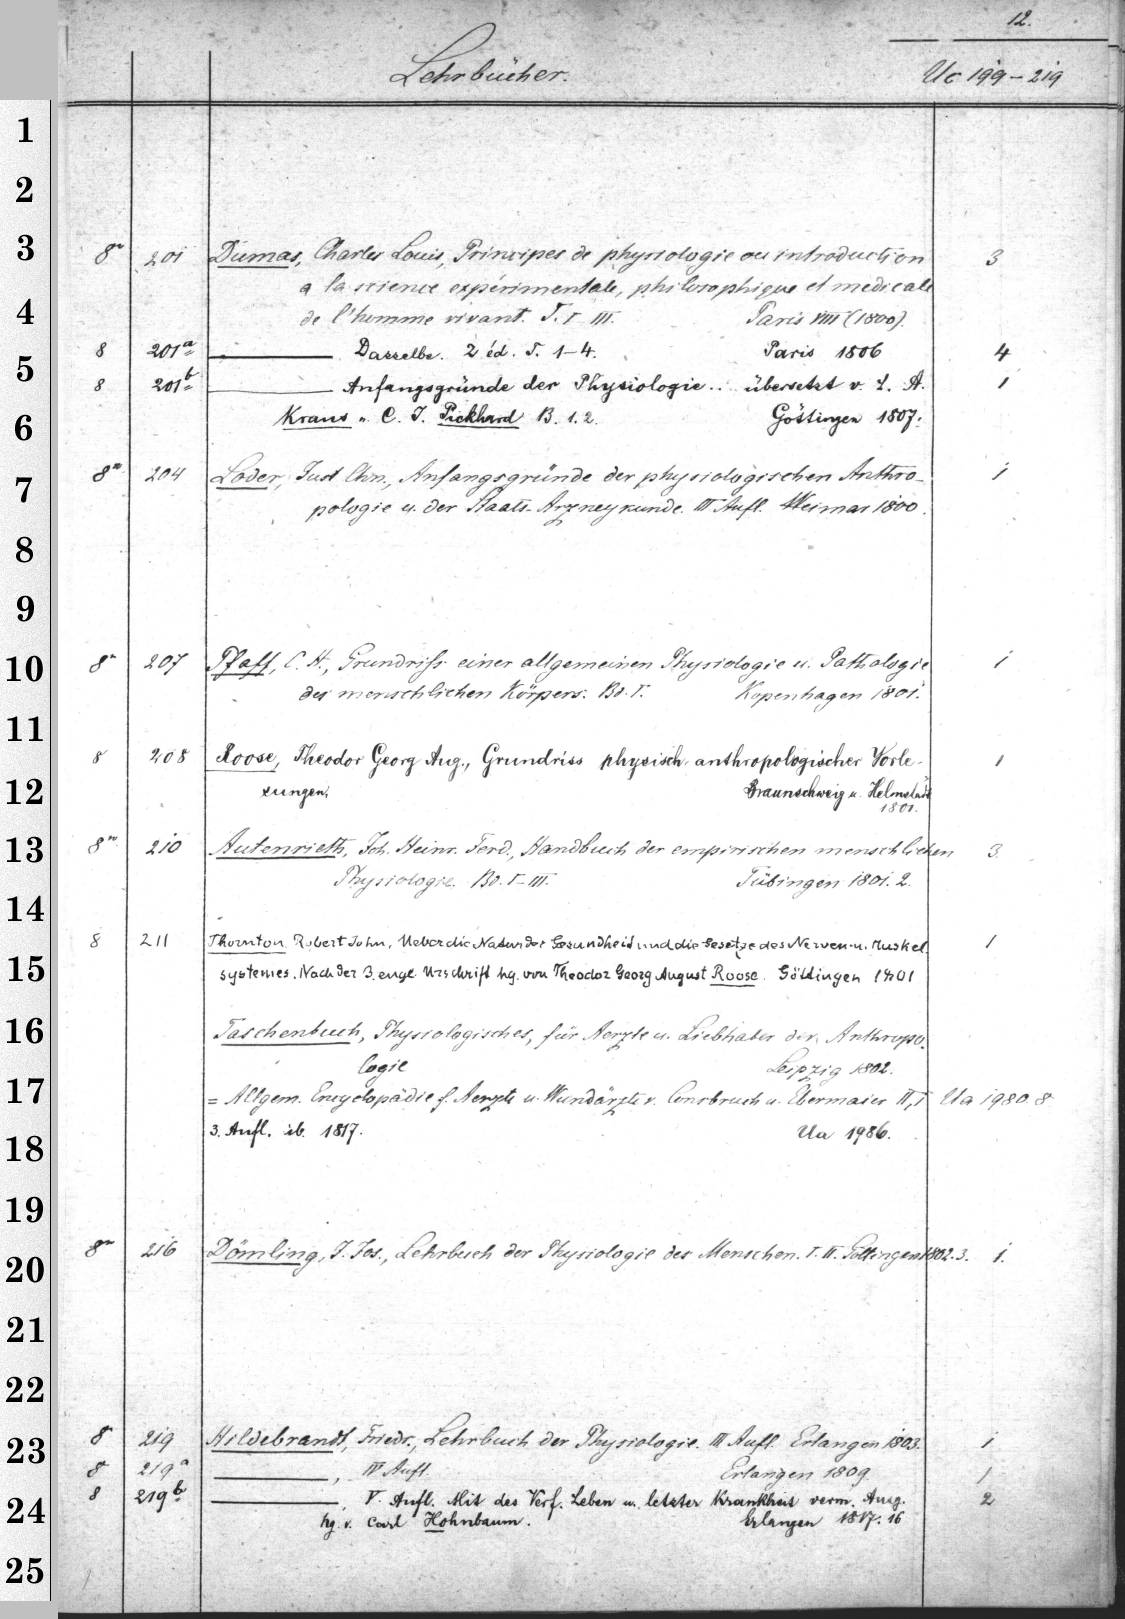 12.
Lehrbücher. Uc 199-219
1
2
3
4
5
6
7
8
9
10
11
12
13
14
15
16
17
18
19
20
21
22
23
24
25
8º 201 Dumas, Charles Louis, Principes de physiologie ou introduction 3
a la science expérimentale, philosophique et medicale
de l'homme vivant. T. I-III. Paris VIII (1800).
8 201a Dasselbe. 2 éd. T. 1-4. Paris 1806 4
8 201b Anfangsgründe der Physiologie.. übersetzt v. L. A. 1
Kraus u. C. J. Pickhard B. 1.2. Göttingen 1807.
8º 204 Loder, Just Chn., Anfangsgründe der physiologischen Anthro- 1
pologie u. der Staats-Arzneykunde. III Aufl. Weimar 1800.
8º 207 Pfaff, C. H., Grundriss einer allgemeinen Physiologie u. Pathologie 1
des menschlichen Körpers. Bd. I. Kopenhagen 1801.
8 208 Roose, Theodor Georg Aug., Grundriss physisch-anthropologischer Vorle- 1
sungen, Braunschweig u. Helmstädt
1801.
8º 210 Autenrieth, Joh. Heinr. Ferd., Handbuch der empirischen menschlichen 3.
Physiologie. Bd. I-III. Tübingen 1801. 2.
8 211 Thornton, Robert John, Ueber die Natur der Gesundheit und die Gesetze des Nerven- u. Muskel 1
systemes. Nach der 3. engl. Urschrift hg. von Theodor Georg August Roose. Göttingen 1801
Taschenbuch, Physiologisches, für Aerzte u. Liebhaber der Anthropo-
logie Leipzig 1802.
= Allgem. Encyclopädie f. Aerzte u. Wundärzte v. Consbruch u. Ebermaier III, I Ua 1980. 8
3. Aufl. ib. 1817. Ua 1986.
8º 216 Dömling, J. Jos., Lehrbuch der Physiologie des Menschen. I. II. Göttingen 1802. 3. 1.
8º 219 Hildebrandt, Friedr., Lehrbuch der Physiologie. III Aufl. Erlangen 1803. 1
8 219a , IV Aufl. Erlangen 1809. 1
8 219b , V. Aufl. Mit des Verf. Leben u. letzter Krankheit verm. Ausg. 2
hg. v. Carl Hohnbaum. Erlangen 1817. 16